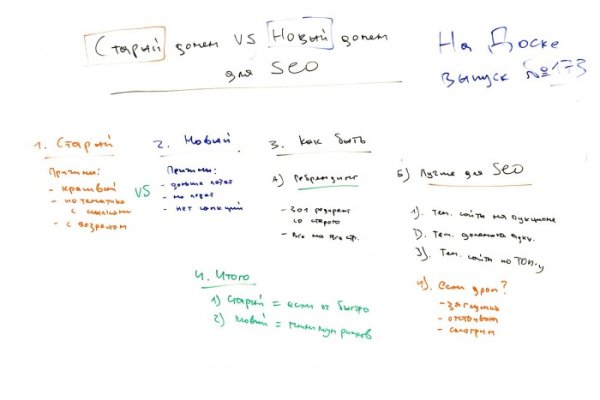 Старый домен VS Новый домен
для SEO
На Доске
выпуск №173
1. Старый
Причины:
- красивый
- по тематике
с ссылками
- с возрастом
VS
2. Новый
Причины:
- дольше
- нет санкций
3. Как быть
А) Ребрендинг
- 301 редирект
со старого
- Все на все стр.
Б) Лучше для SEO
1). Тем. сайты на аукционе
2). Тем. домены аукц.
3). Тем. сайты по ТОП-у
4). если дроп?
- загрузил
- отстоять
- смотрим
4. Итого
1) Старый = если ок быстро
2) Новый = минимум рисков